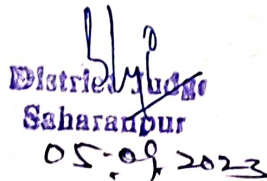 District Judge
Saharanpur
05.09.2023